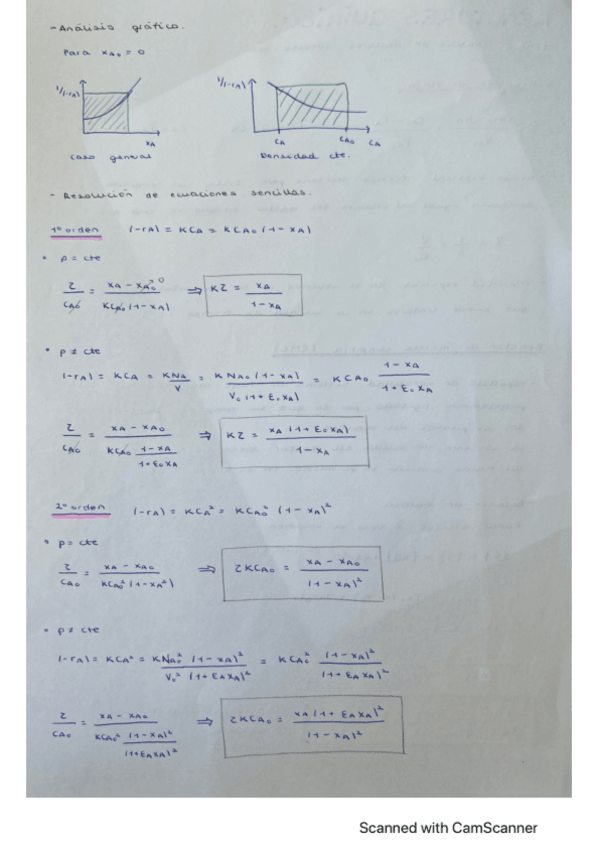 - Análisis gráfico.
Para xA0 = 0
1/(-rA) 1/(-rA)
xA CA CA0 CA
Caso general Densidad cte.
- Resolución de ecuaciones sencillas.
1º orden (-rA) = KCA = KCA0 (1 - xA)
• ρ = cte
τ/CA0 = (xA - xA0)/(KCA0 (1 - xA)) ⇒ Kτ = xA/(1 - xA)
• ρ ≠ cte
(-rA) = KCA = K NA/V = K NA0 (1 - xA)/(V0 (1 + E0 xA)) = KCA0 (1 - xA)/(1 + E0 xA)
τ/CA0 = (xA - xA0)/(KCA0 (1 - xA)/(1 + E0 xA)) ⇒ Kτ = xA (1 + E0 xA)/(1 - xA)
2º orden (-rA) = KCA² = KCA0² (1 - xA)²
• ρ = cte
τ/CA0 = (xA - xA0)/(KCA0² (1 - xA²)) ⇒ τKCA0 = (xA - xA0)/(1 - xA)²
• ρ ≠ cte
(-rA) = KCA² = KNA0² (1 - xA)²/(V0² (1 + EA xA)²) = KCA0² (1 - xA)²/(1 + EA xA)²
τ/CA0 = (xA - xA0)/(KCA0² (1 - xA)²/(1 + EA xA)²) ⇒ τKCA0 = xA (1 + EA xA)²/(1 - xA)²
Scanned with CamScanner